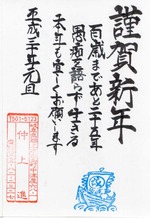 謹賀新年
百歳まであと二十五年
愚痴を語らず生きる
本年も宜しくお願い致します
平成三十年元旦
仲上進